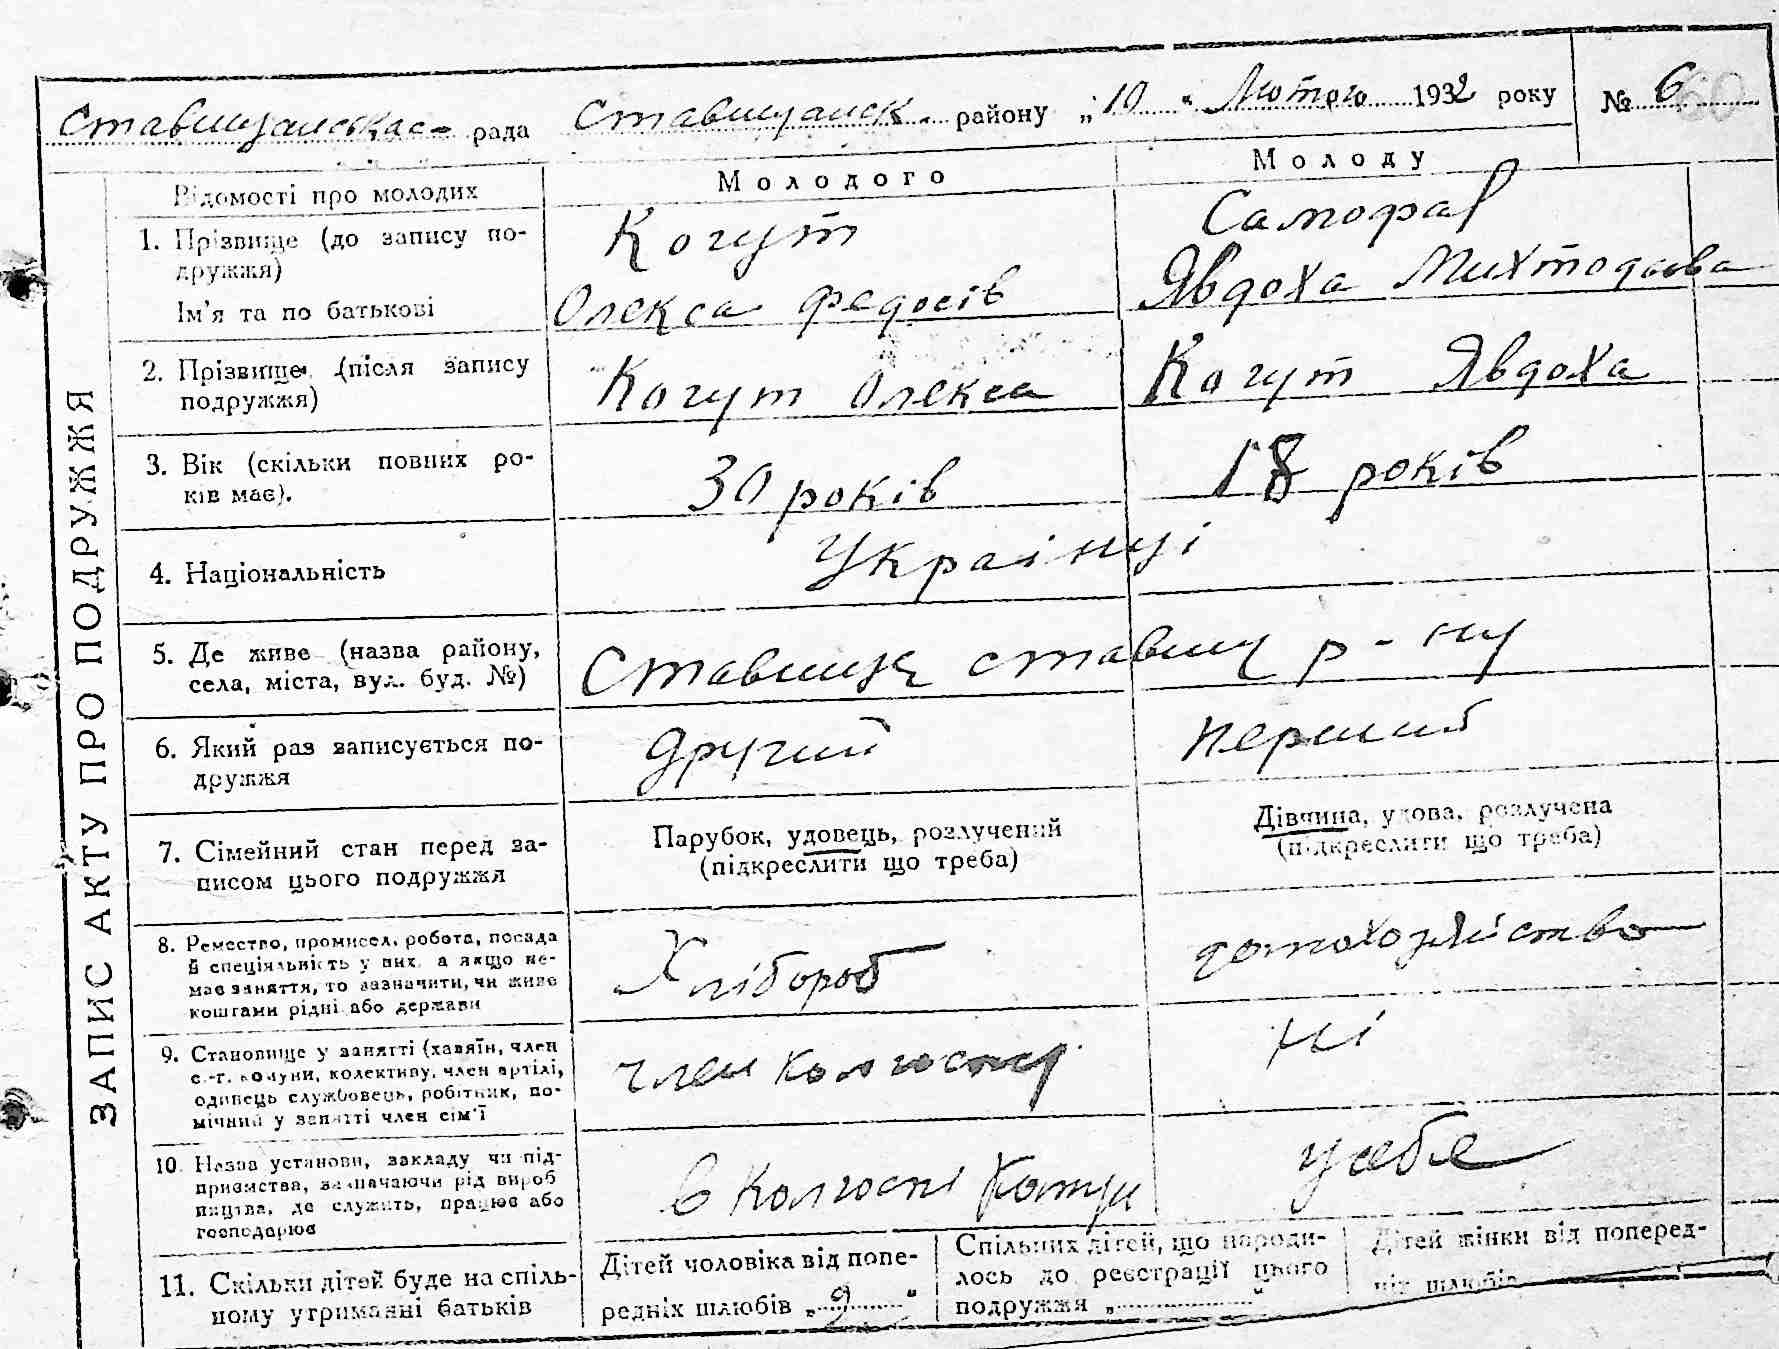 Ставищанська рада Ставищанск. району „10" Лютого 1932 року № 6 60
Відомості про молодих
Молодого
Молоду
1. Прізвище (до запису по-
дружжя)
Ім'я та по батькові
Когут
Олекса Федосів
Самофал
Явдоха
2. Прізвище (після запису
подружжя)
Когут Олекса
Когут Явдоха
3. Вік (скільки повних ро-
ків має).
30 років
18 років
4. Національність
Українці
5. Де живе (назва району,
села, міста, вул. буд. №)
Ставище ставищ р-ну
6. Який раз записується по-
дружжя
другий
перший
7. Сімейний стан перед за-
писом цього подружжя
Парубок, удовець, розлучений
(підкреслити що треба)
Дівчина, удова, розлучена
(підкреслити що треба)
8. Ремество, промисел, робота, посада
й спеціяльність у них, а якщо не-
має заняття, то зазначити, чи живе
коштами рідні або держави
Хлібороб
домохозяйство
9. Становище у занятті (хазяїн, член
с.-г. комуни, колективу, член артілі,
одинець службовець, робітник, по-
мічний у занятті член сім'ї
член колгоспу
ні
10. Назва установи, закладу чи під-
приємства, зазначаючи рід вироб
ництва, де служить, працює або
господарює
в колгоспі
у себе
11. Скільки дітей буде на спіль-
ному утриманні батьків
Дітей чоловіка від попе-
редніх шлюбів „2"
Спільних дітей, що народи-
лось до реєстрації цього
подружжя „ "
Дітей жінки від поперед-
ніх шлюбів
ЗАПИС АКТУ ПРО ПОДРУЖЖЯ